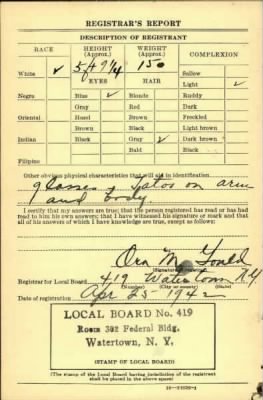 REGISTRAR'S REPORT
DESCRIPTION OF REGISTRANT
RACE HEIGHT (Approx.) WEIGHT (Approx.) COMPLEXION
White ✓ 5 ft 9 1/4 150 Sallow
EYES HAIR Light ✓
Negro Blue ✓ Blonde Ruddy
Gray Red Dark
Oriental Hazel Brown Freckled
Brown Black Light brown
Indian Black Gray ✓ Dark brown
Bald Black
Filipino
Other obvious physical characteristics that will aid in identification
glasses, Tatos on arm
and body.
I certify that my answers are true; that the person registered has read or has had
read to him his own answers; that I have witnessed his signature or mark and that
all of his answers of which I have knowledge are true, except as follows:
Ora M. Gould
(Signature of registrar)
Registrar for Local Board 419 Watertown N.Y.
(Number) (City or county) (State)
Date of registration Apr 25 - 1942
LOCAL BOARD No. 419
ROOM 302 Federal Bldg.
WATERTOWN, N. Y.
(STAMP OF LOCAL BOARD)
(The stamp of the Local Board having jurisdiction of the registrant
shall be placed in the above space)